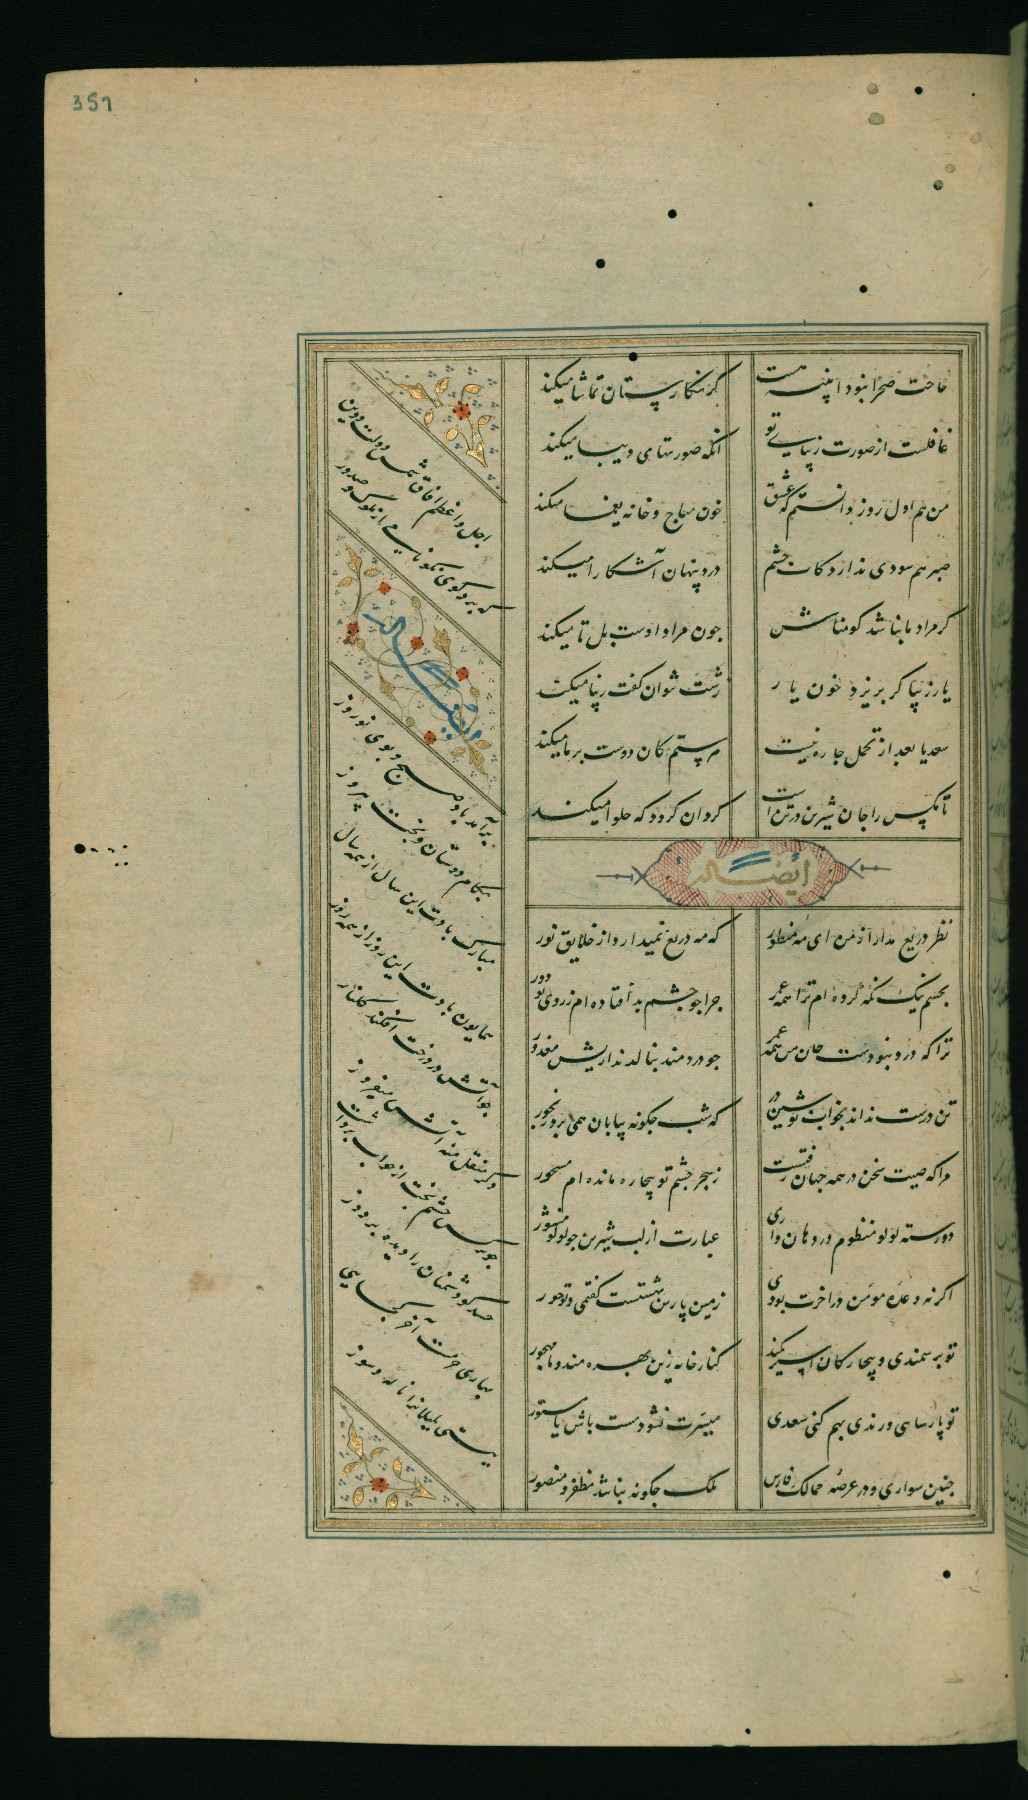 357
حاجت صحرا نبود آینه هست
گر نگارستان تماشا میکند
غافلست از صورت زیبای تو
آنکه صورتهای دیبا میکند
من هم اول روز دانستم که عشق
خون مباح و خانه یغما میکند
صبر هم سودی ندارد کاب چشم
درد پنهان آشکارا میکند
گر مراد ما نباشد گو مباش
چون مراد اوست بل تا میکند
یار زیبا گر بریزد خون یار
زشت نتوان گفت زیبا میکند
سعدیا بعد از تحمل چاره نیست
هر ستم کان دوست بر ما میکند
تا مگس را جان شیرین در تن است
گرد آن گردد که حلوا میکند
ایضا له
نظر دریغ مدار از من ای مه منظور
که مه دریغ نمیدارد از خلایق نور
بچشم نیک نگه کرده ام ترا همه عمر
چرا چو چشم بد افتاده ام ز روی تو دور
ترا که درد نبودست جان من همه عمر
چو دردمند بنالد نداریش معذور
تن درست نداند بخواب نوشین در
که شب چگونه بپایان همی برد رنجور
مرا که صیت سخن در همه جهان رفتست
ز سحر چشم تو بیچاره مانده ام مسحور
دو رسته لولو منظوم در دهان داری
عبارت از لب شیرین چو لولو منثور
اگر نه وعده مومن در آخرت بودی
زمین پارس بهشتست گفتمی و تو حور
تو بر سمندی و بیچارگان اسیر کمند
کنار خانه زین بهره مند و ما مهجور
تو پارسایی و رندی بهم کنی سعدی
میسرت نشود مست باش یا مستور
چنین سواری و در عرصه ممالک فارس
ملک چگونه نباشد مظفر و منصور
اجل و اعظم آفاق شمس دولت و دین
که برد گوی نکونامی از ملوک و صدور
ایضا له
برآمد باد صبح و بوی نوروز
بکام دوستان و بخت پیروز
مبارک بادت این سال از همه سال
همایون بادت این روز از همه روز
چو آتش در درخت افکند گلنار
دگر منقل منه آتش میفروز
چو نرگس چشم بخت از خواب برداشت
حسد گو دشمنان را دیده بر دوز
بهاری خرمست آخر کجایی
بینی بلبلانرا ناله و سوز